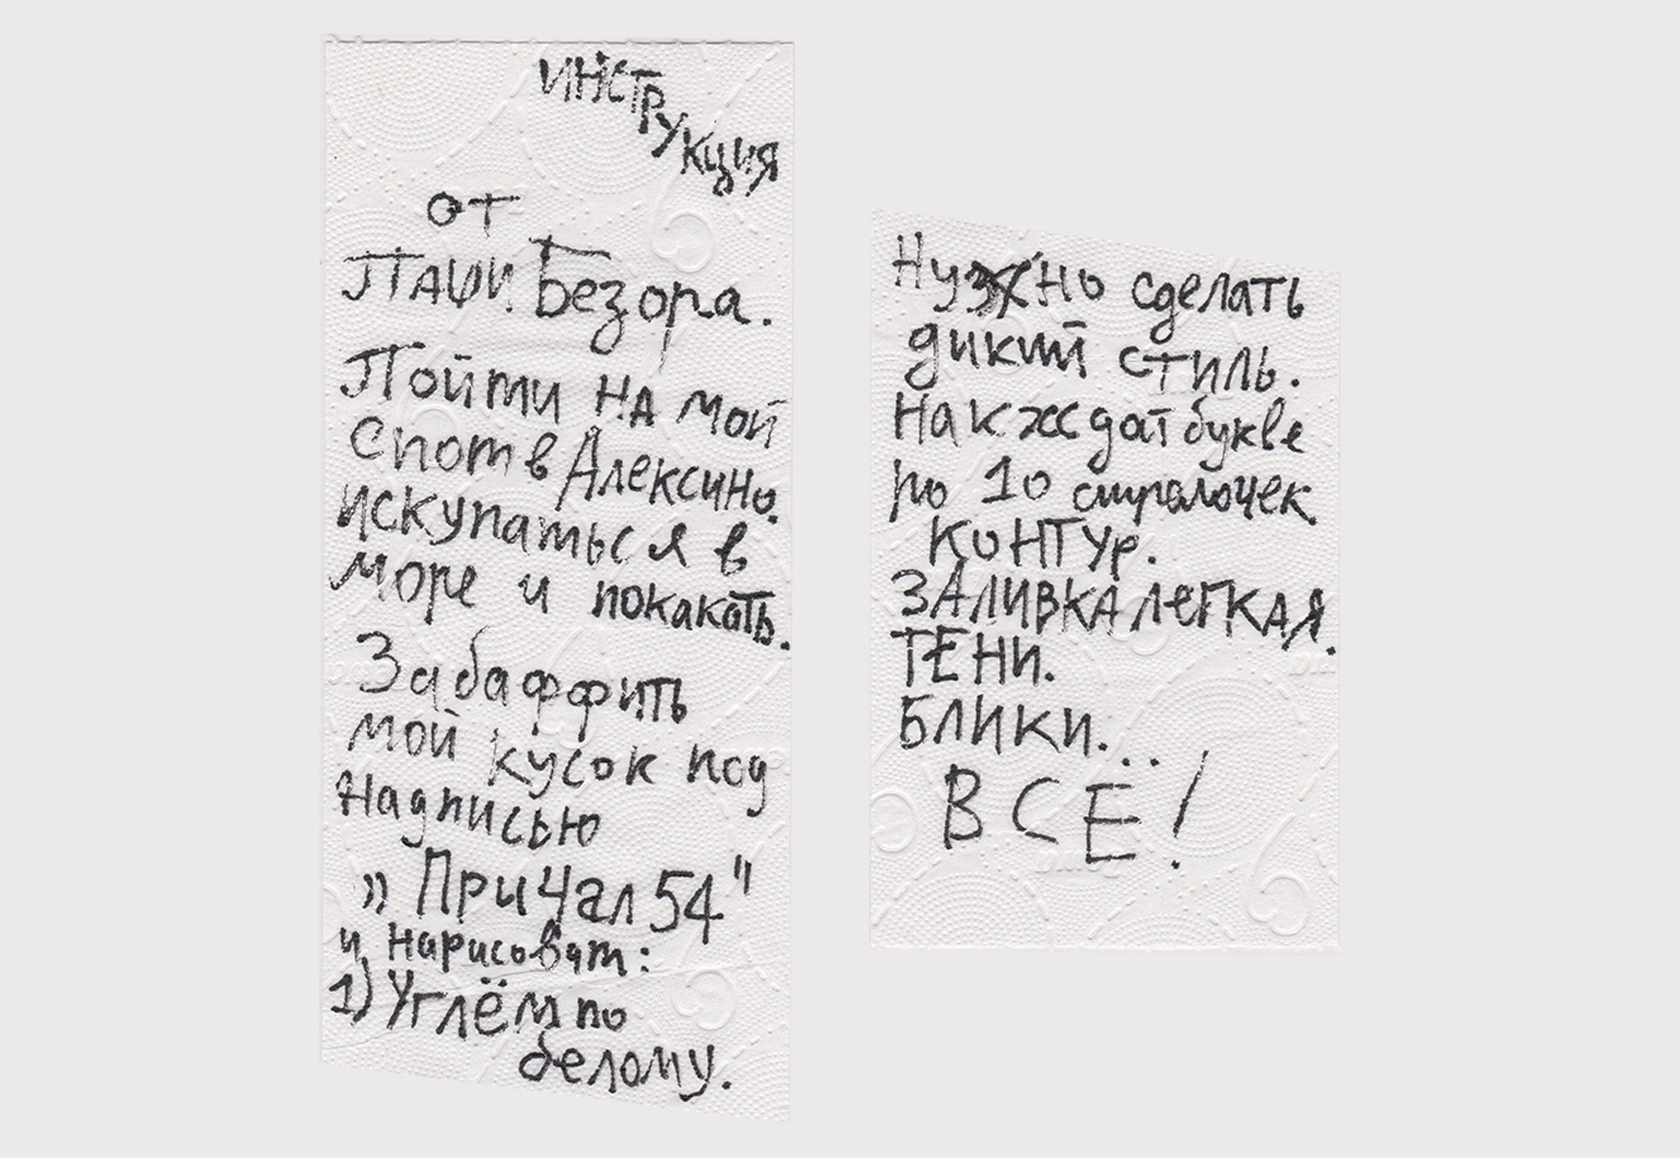 ИНСТРУКЦИЯ
от
ПАШИ Безора.
Пойти НА мой
Спот в Алексино.
искупаться в
море и покакать.
Забаффить
мой кусок под
Надписью
„Причал 54"
и нарисоват:
1) Углём по
белому.
Нужно сделать
дикий стиль.
На кждой букве
по 10 стралочек.
КОНТУР.
ЗАЛИВКА ЛЕГКАЯ.
ТЕНИ.
БЛИКИ.
ВСЁ!